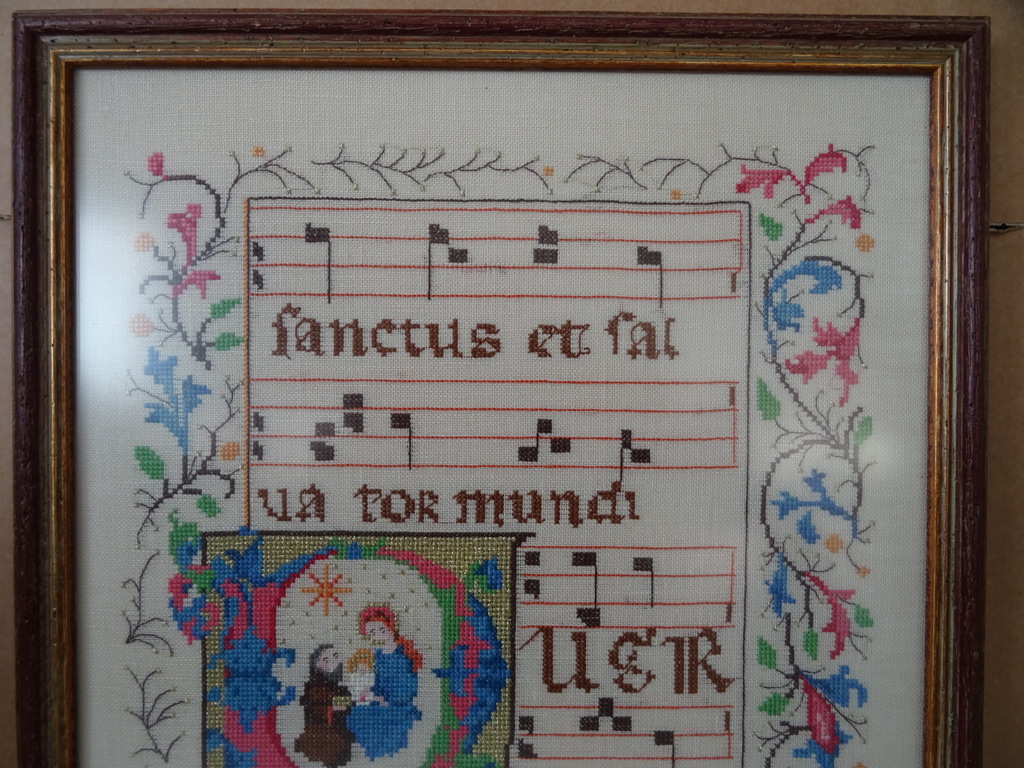 sanctus et sal
va tor mundi
UER